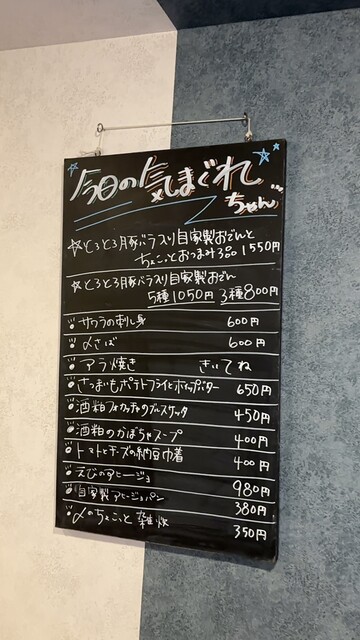 今日の気まぐれ
ちゃん
☆とろとろ豚バラ入り自家製おでんと
ちょこっとおつまみ3品 1550円
☆とろとろ豚バラ入り自家製おでん
5種1050円 3種800円
サワラの刺し身 600円
〆さば 600円
アラ焼き きいてね
さつまいもポテトフライとホイップバター 650円
酒粕フォカッチャのブルスケッタ 450円
酒粕のかぼちゃスープ 400円
トマトとチーズの納豆巾着 400円
えびのアヒージョ 980円
自家製アヒージョパン 380円
〆のちょこっと雑炊 350円